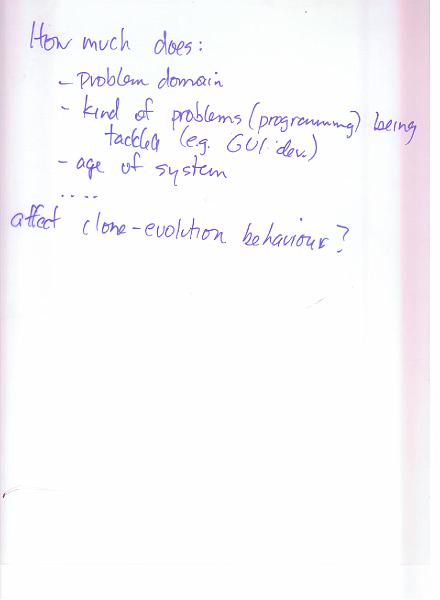 How much does:
- Problem domain
- kind of problems (programming) being
tackled (e.g. GUI dev.)
- age of system
....
affect clone-evolution behaviour?